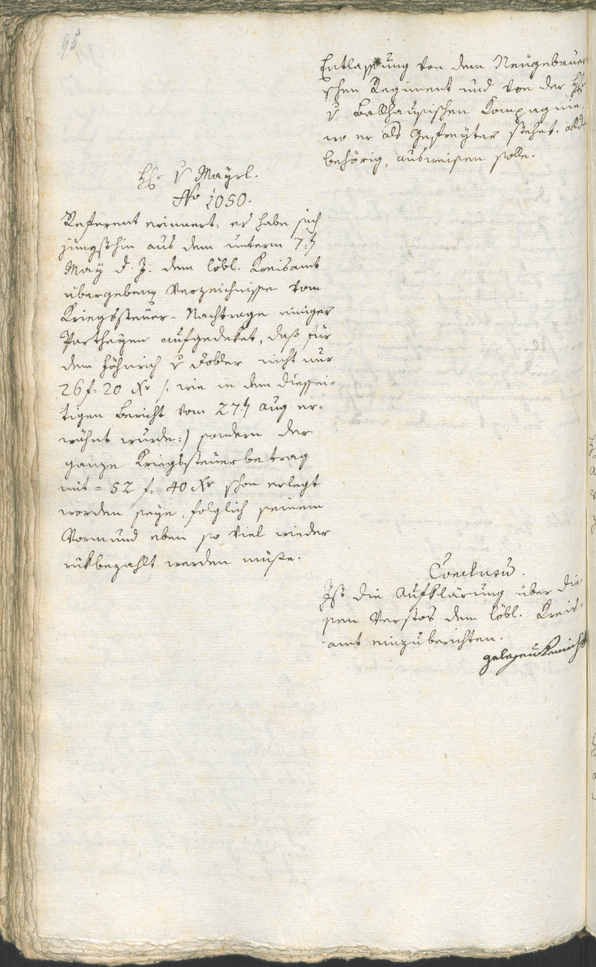 95
Entlassung von dem Neugebauer
schen Regiment und von der H
v Ballhausischen Kompagnie,
wo er als Gefreyter stehet, als
behörig, ausweisen solle.
H v Mayrl.
No 1050.
Referent erinnert: er habe sich
jüngsthin aus dem unterm 7t
May d. J. dem löbl. Kreisamt
übergebenen Verzeichnisse vom
Kriegssteuer-Nachtrage einiger
Partheyen aufgedeket, daß für
dem Heinrich v Dobler nicht nur
26 f. 20 Xr /: wie in dem diessei-
tigen Bericht vom 27t Aug er-
wähnt wurde :/ sondern der
ganze Kriegssteuerbetrag
mit = 52 f. 40 Xr schon erlegt
worden seye, folglich seinem
Vormund eben so viel wieder
rükbezahlt werden müsse.
Conclusum.
Ist die Aufklärung über die-
sen Verstos dem löbl. Kreis-
amt einzuberichten.
gelesen